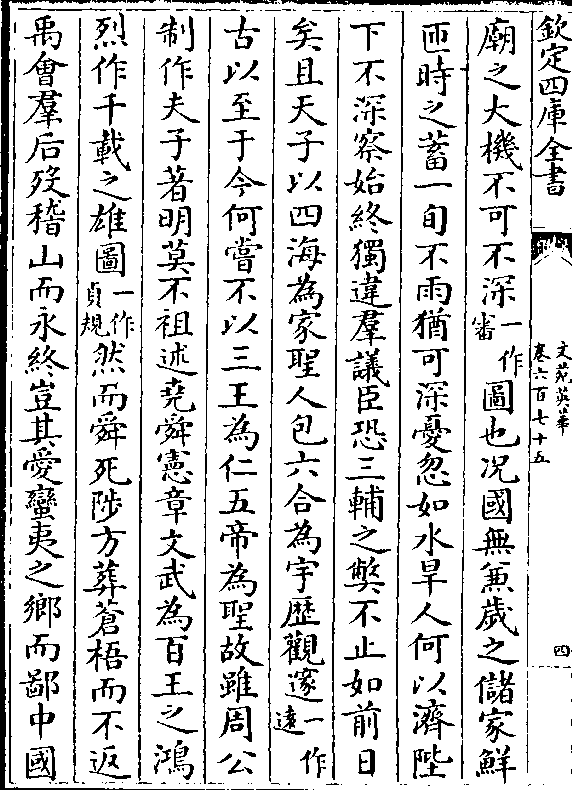 欽定四庫全書
文苑英華
卷六百七十五
四
廟之大機不可不深一作審圖也况國無兼歲之儲家鮮
匝時之蓄一旬不雨猶可深憂忽如水旱人何以濟陛
下不深察始終獨違羣議臣恐三輔之弊不止如前日
矣且天子以四海為家聖人包六合為宇歴觀邃一作遠
古以至于今何嘗不以三王為仁五帝為聖故雖周公
制作夫子著明莫不祖述堯舜憲章文武為百王之鴻
烈作千載之雄圖一作貞規然而舜死陟方葬蒼梧而不返
禹會羣后歿稽山而永終豈其愛蠻夷之鄉而鄙中國